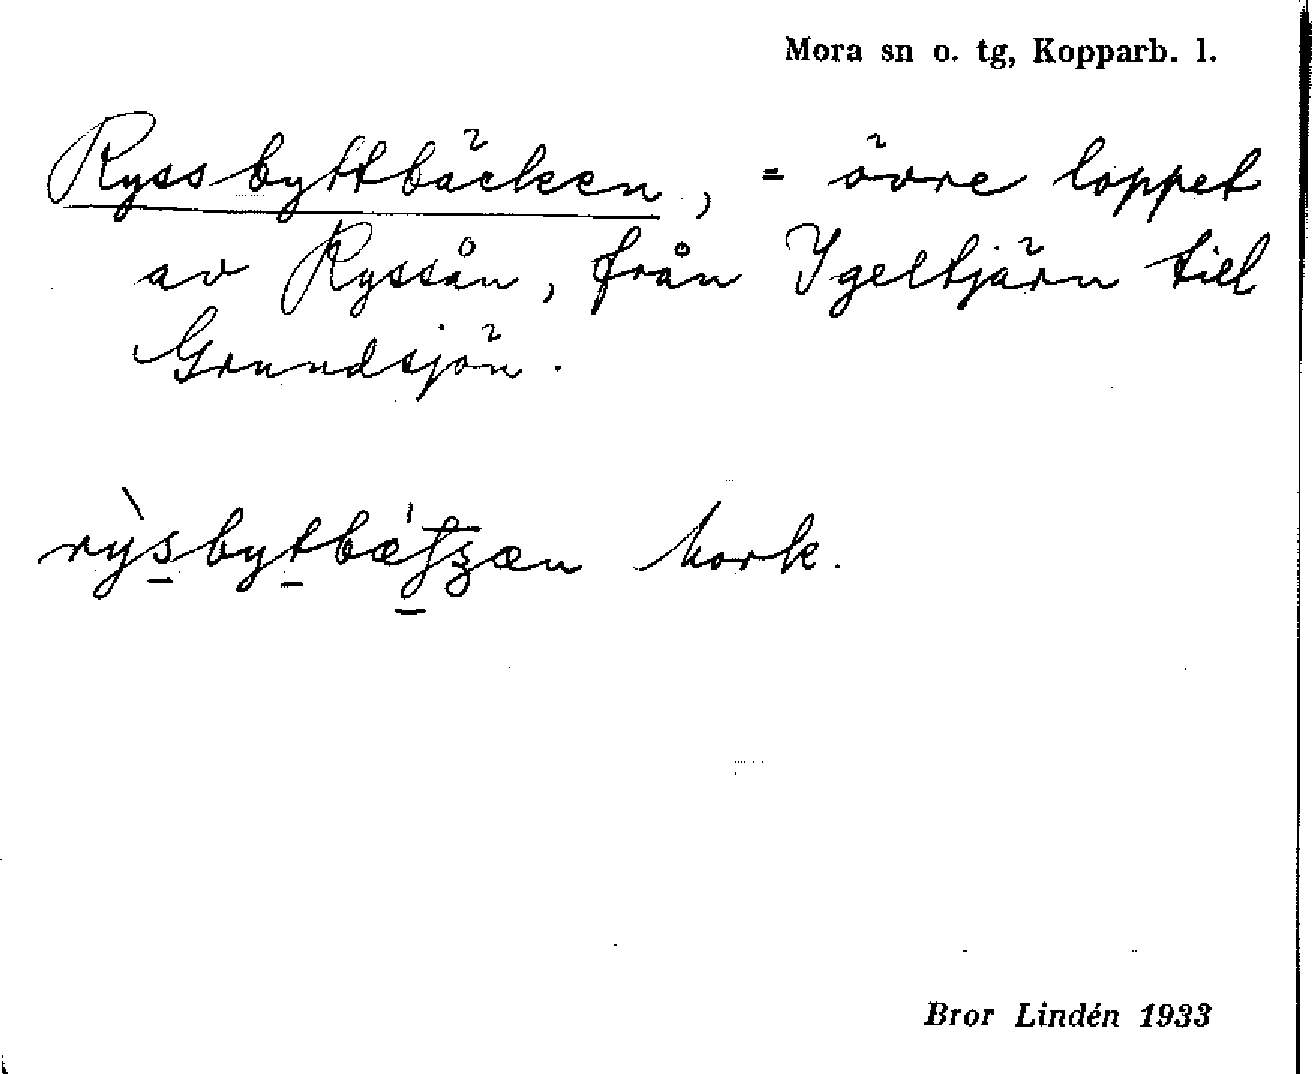 Mora sn o. tg, Kopparb. l.
Ryssbyttbäcken, = övre loppet
av Ryssån, från Igeltjärn till
Grundsjön.
Mork.
Bror Lindén 1933